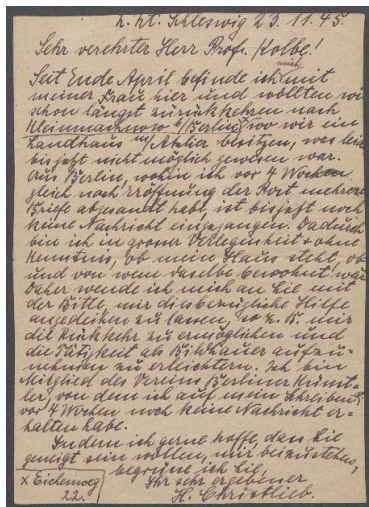 z. Zt. Schleswig 23.11.45.
Sehr verehrter Herr Prof. Kolbe!
Seit Ende April befinde ich mich mit
meiner Frau hier und wollten wir
schon längst zurückkehren nach
Kleinmachnow b/Berlin, wo wir ein
Landhaus m/Atelier besitzen, was leider
bis jetzt nicht möglich gewesen war.
Aus Berlin, wohin ich vor 4 Wochen
gleich nach Eröffnung der Post mehrere
Briefe abgesandt habe, ist bisjetzt noch
keine Nachricht eingegangen. Dadurch
bin ich in grosser Verlegenheit u. ohne
Kenntnis, ob mein Haus steht, ob
und von wem dasselbe bewohnt wäre.
Daher wende ich mich an Sie mit
der Bitte, mir diesbezügliche Hilfe
angedeihen zu lassen, so z. B. mir
die Rückkehr zu ermöglichen und
die Tätigkeit als Bildhauer aufzu-
nehmen zu erleichtern. Ich bin
Mitglied des Vereins Berliner Künst-
ler, von dem ich auf mein Schreiben
vor 4 Wochen noch keine Nachricht er-
halten habe.
Indem ich gerne hoffe, dass Sie
geneigt sein wollen, mir beizustehen,
begrüße ich Sie,
Ihr sehr ergebener
H. Christlieb.
x Eichenweg
22.